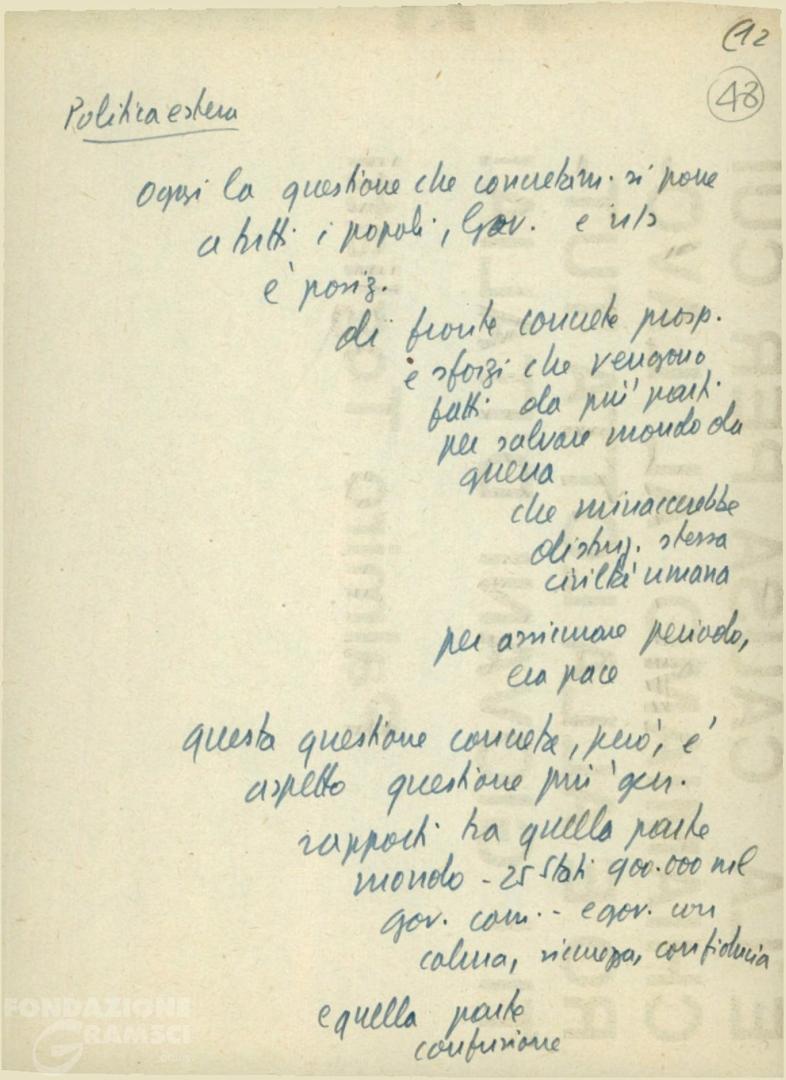 (12
48
Politica estera
oggi la questione che concretam. si pone
a tutti i popoli, Gov. e
è posiz.
di fronte concrete prosp.
e sforzi che vengono
fatti da più parti
per salvare mondo da
guerra
che minaccerebbe
distruz. stessa
civiltà umana
per assicurare periodo,
era pace
questa questione concreta, però, è
aspetto questione più gen.
rapporti tra quella parte
mondo - 25 Stati 900.000 mil
gov. com. - e gov. con
calma, sicurezza, confiducia
e quella parte
confusione
FONDAZIONE
GRAMSCI